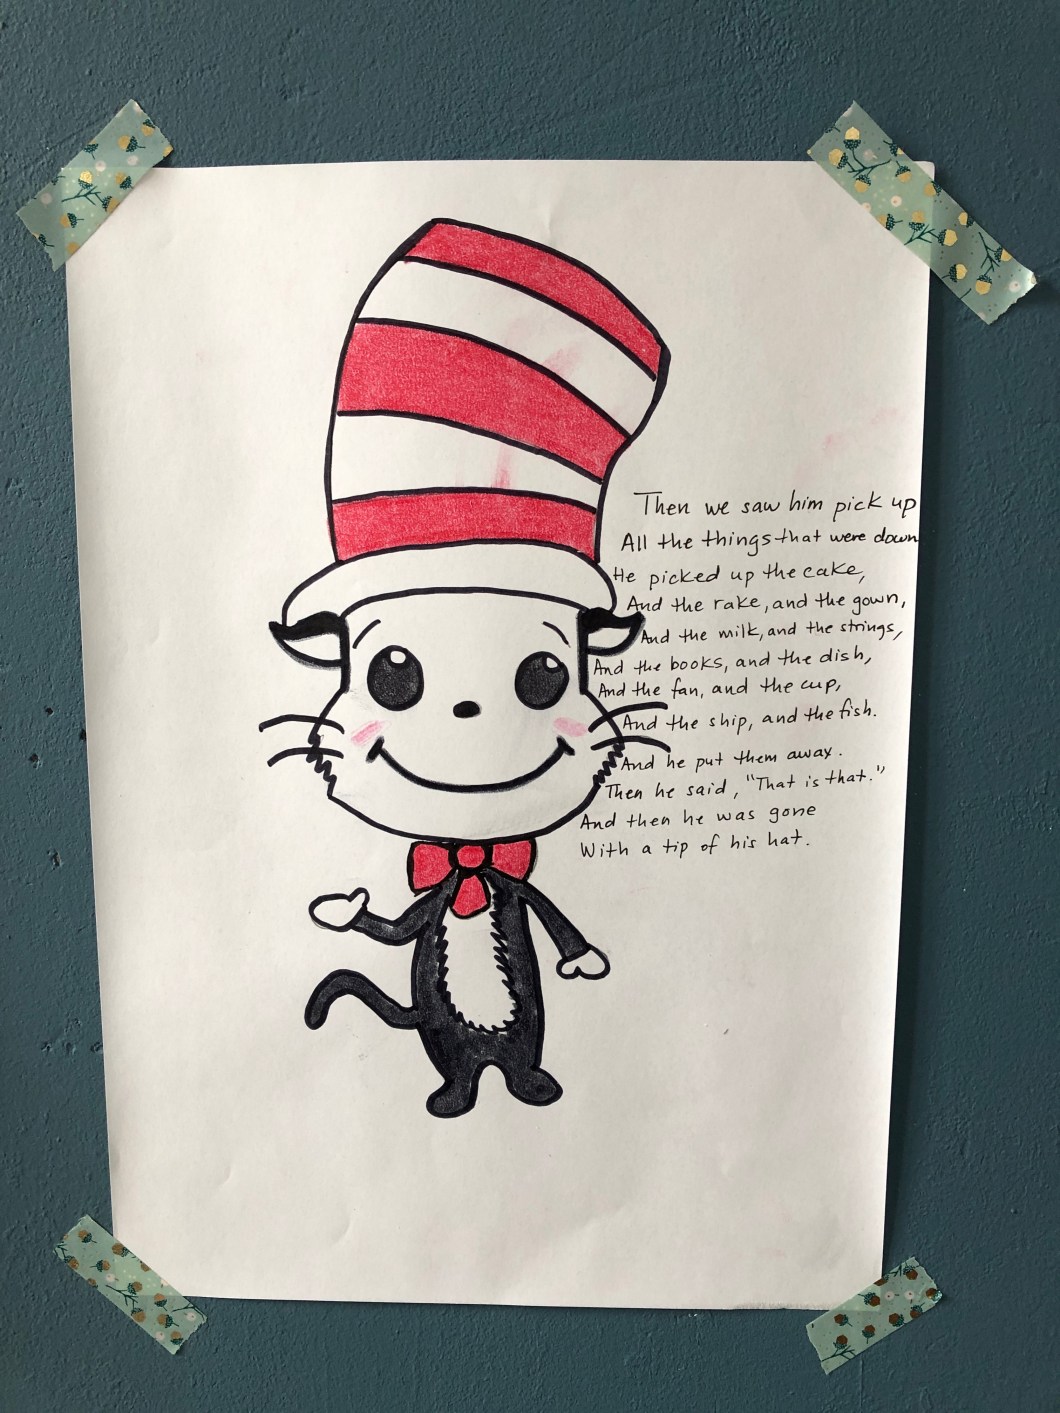 Then we saw him pick up
All the things that were down
He picked up the cake,
And the rake, and the gown,
And the milk, and the strings,
And the books, and the dish,
And the fan, and the cup,
And the ship, and the fish.
And he put them away.
Then he said, "That is that."
And then he was gone
With a tip of his hat.